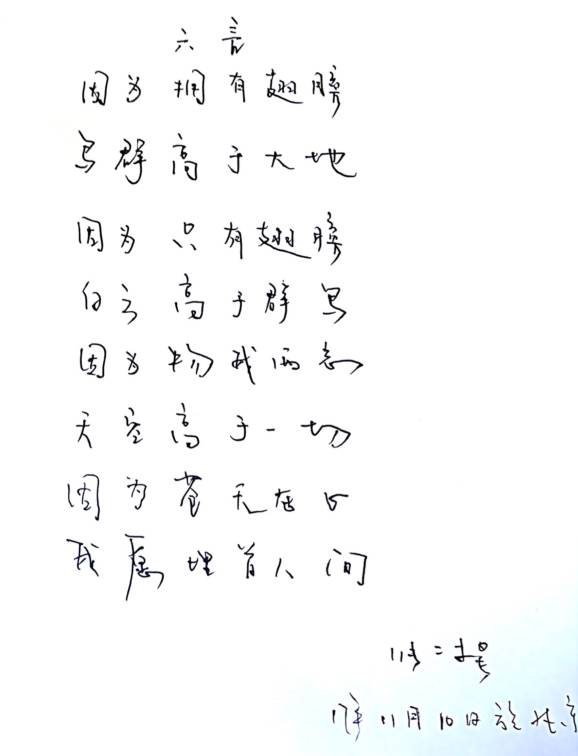 六言
因为拥有翅膀
鸟群高于大地
因为只有翅膀
白云高于群鸟
因为物我两忘
天空高于一切
因为苍天在上
我愿埋首人间
17年11月10日於北京